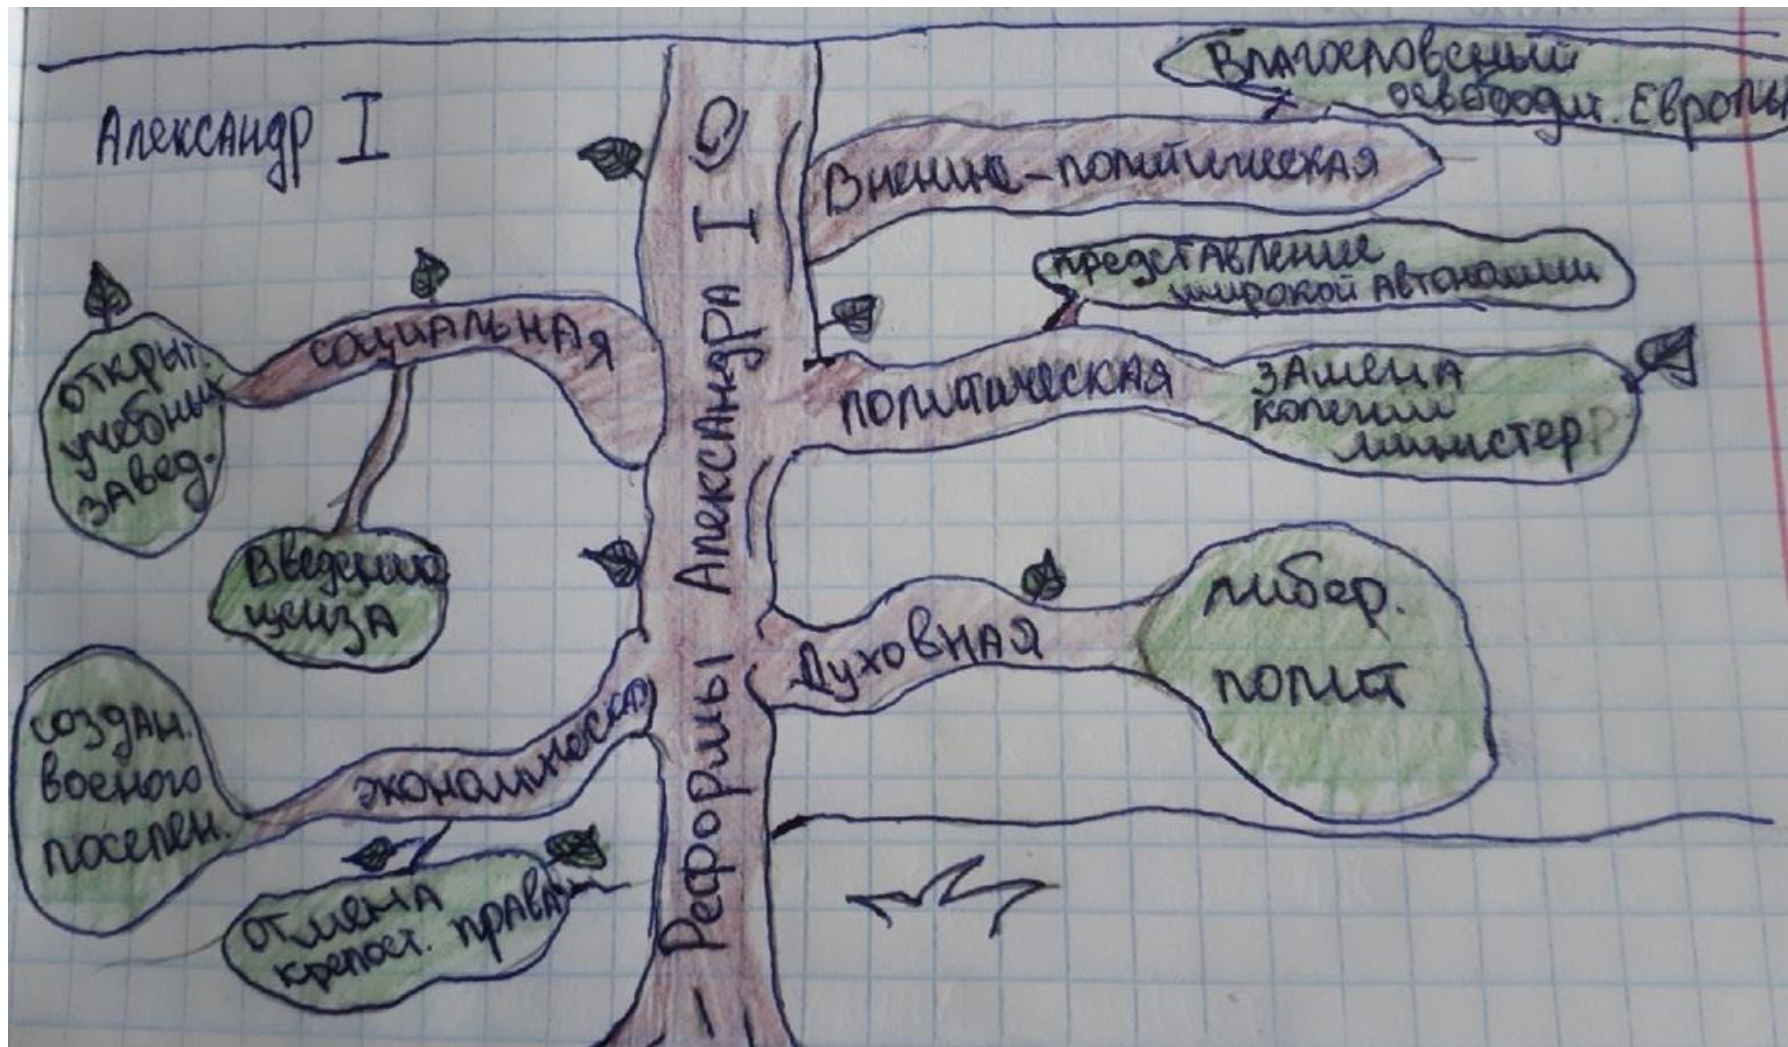 Александр I
Реформы Александра I
Внешне-политическая
Благословенный
освободит. Европы
политическая
представление
широкой автономии
замена
колегий
министер
Духовная
либер.
полит
социальная
открыт.
учебных
завед.
Введение
ценза
экономическая
создан.
военого
поселен.
отмена
крепост. права